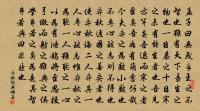 孟子曰無或乎王之不
智也雖有天下易生之
物也一日暴之十日寒
之未有能生者也吾見
亦罕矣吾退而寒之者
至矣吾如有萌焉何哉
今夫弈之為數小數也
不專心致志則不得也
弈秋通國之善弈者也
使弈秋誨二人弈其一
人專心致志惟弈秋之
為聽一人雖聽之一心
以為有鴻鵠將至思援
弓繳而射之雖與之俱
學弗若之矣為是其智
弗若與曰非然也